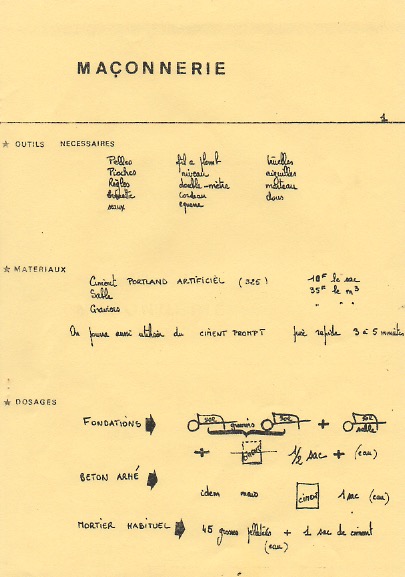 MAÇONNERIE
1
★ OUTILS NECESSAIRES
Pelles fil a plomb truelles
Pioches niveau aiguilles
Règles double-mètre marteau
cordeau clous
seaux equerre
★ MATERIAUX
Ciment PORTLAND ARTIFICIEL (325) 10F le sac
Sable 35F le m3
Graviers " " "
On pourra aussi utiliser du CIMENT PROMPT prise rapide 3 à 5 minutes
★ DOSAGES
FONDATIONS 50l graviers 50l + 50l sable
+ ciment 1/2 sac + (eau)
BETON ARMÉ
idem mais ciment 1 sac (eau)
MORTIER HABITUEL 45 grosses pelletées + 1 sac de ciment
(eau)